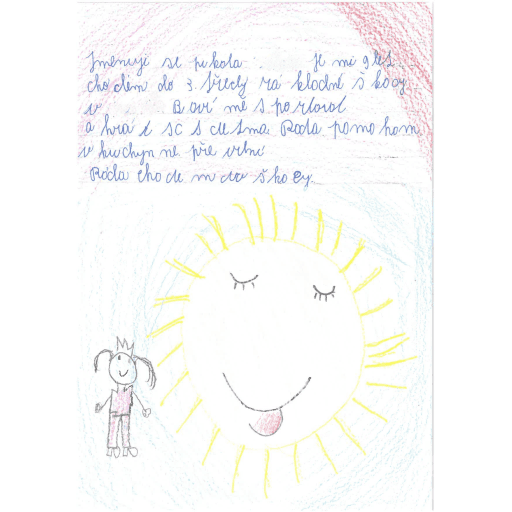 Jmenuji se nikola Je mi 9 let
chodem do 3. tředy zá kladné š koly
v
B aví mě s portovat
a hrá t sč s detma Ráda pomo ham
v kuchyn ne pře vřbní
Ráda cho de m do š koly.